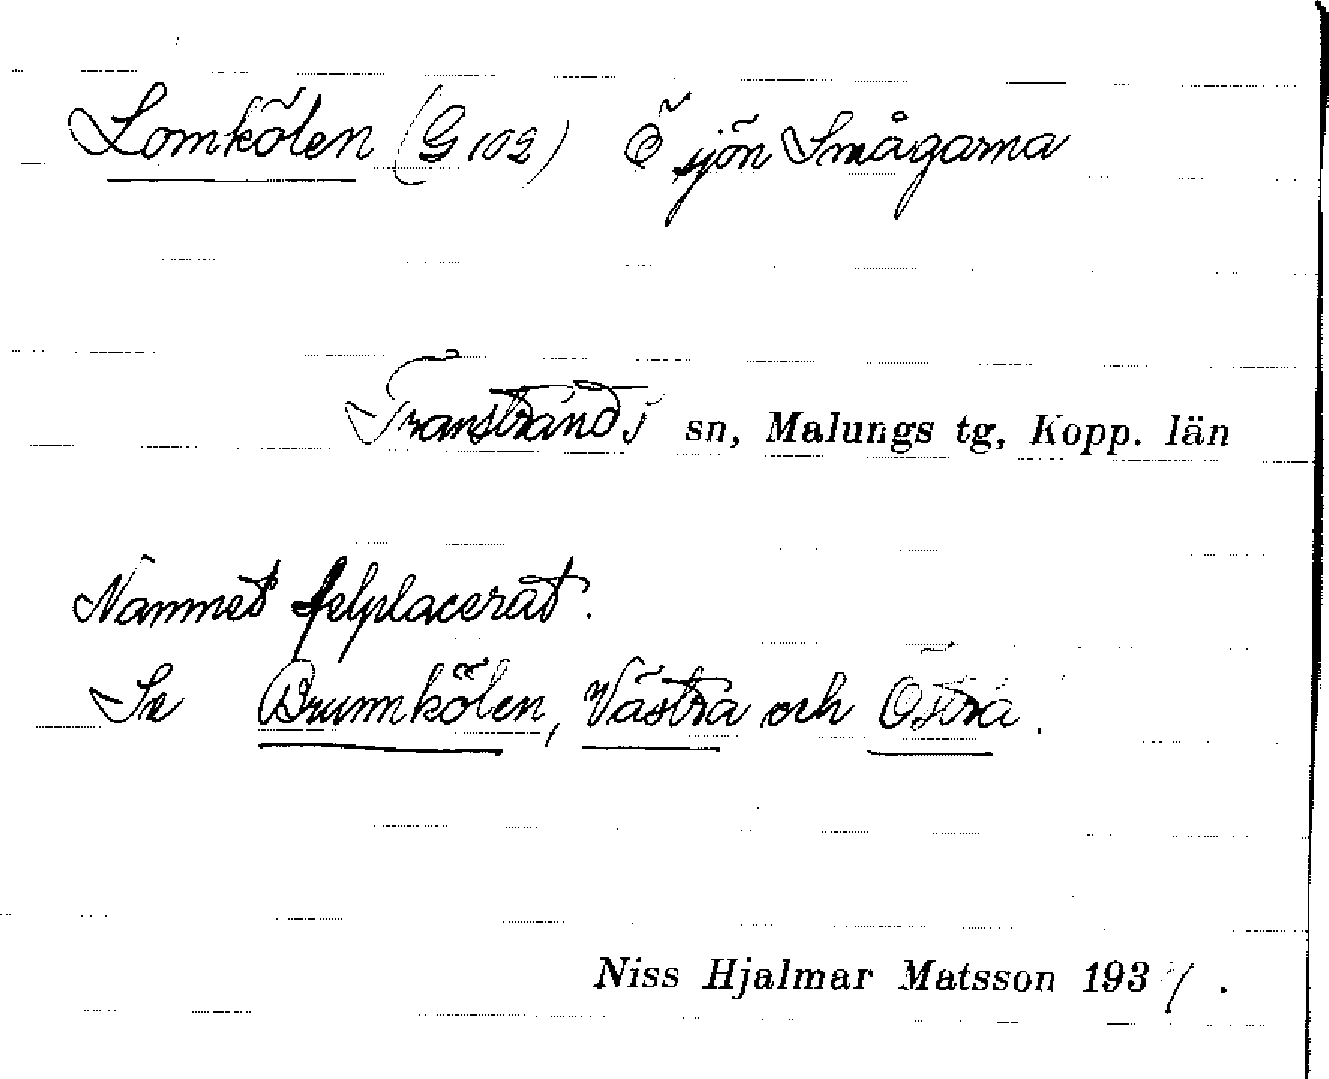 Lomkölen (G 102) Ö sjön Smågarna
Transtrands sn, Malungs tg, Kopp. län
Namnet felplacerat.
Se Brunnkölen, Västra och Östra.
Niss Hjalmar Matsson 193